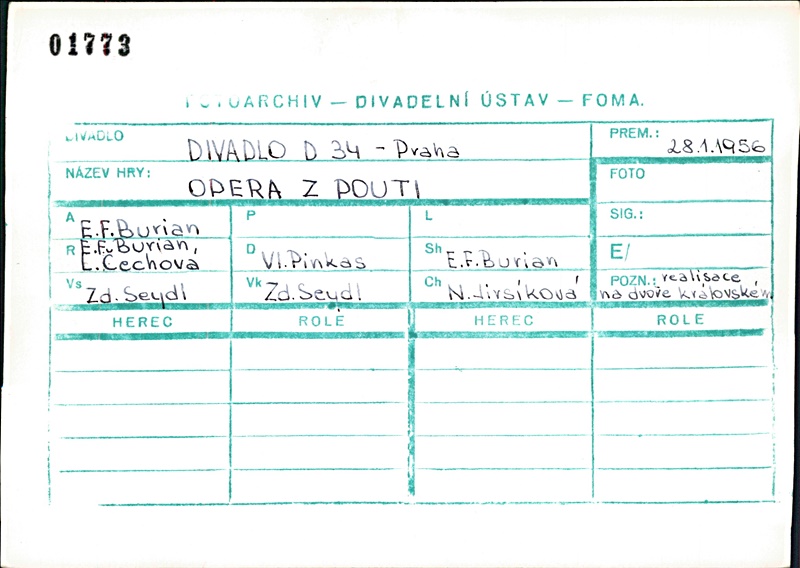 01773
FOTOARCHIV — DIVADELNÍ ÚSTAV — FOMA.
DIVADLO DIVADLO D 34 - Praha PREM.: 28.1.1956
NÁZEV HRY: OPERA Z POUTI FOTO
A E.F.Burian P L SIG.:
R E.F.Burian, E.Čechová D Vl.Pinkas Sh E.F.Burian E/
Vs Zd.Seydl Vk Zd.Seydl Ch N.Jirsíková POZN.: realisace
na dvoře královském
HEREC ROLE HEREC ROLE